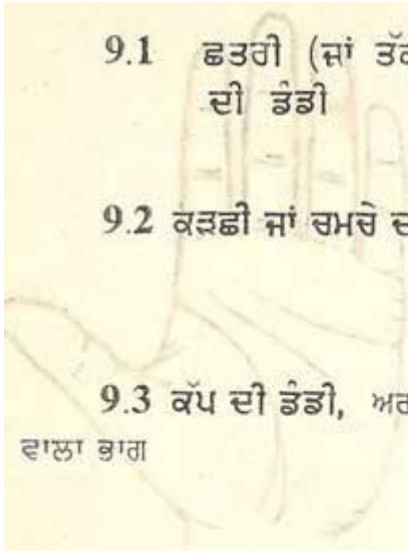 9.1 ਛਤਰੀ (ਜਾਂ
ਦੀ ਡੰਡੀ
9.2 ਕੜਛੀ ਜਾਂ ਚਮਚੇ
9.3 ਕੱਪ ਦੀ ਡੰਡੀ,
ਵਾਲਾ ਭਾਗ